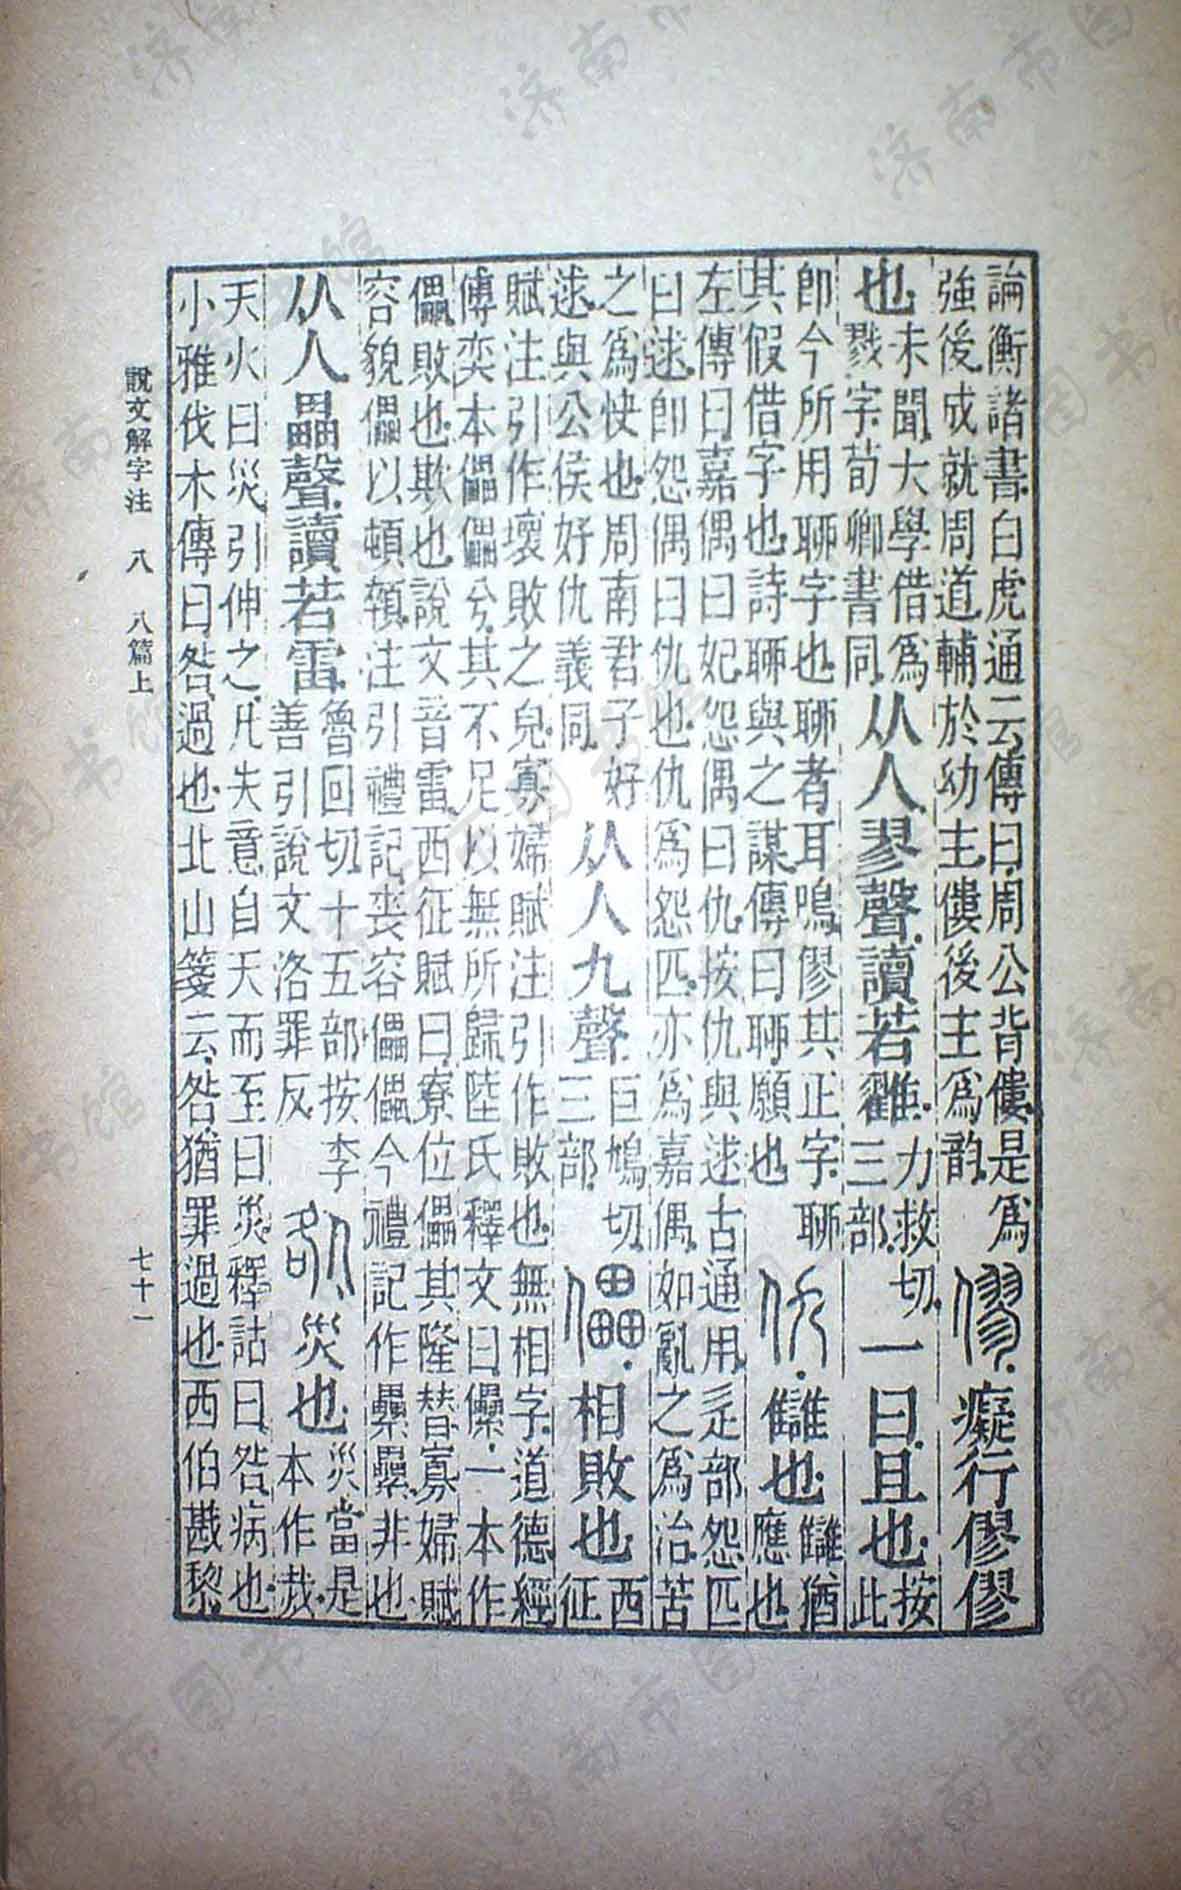 論衡諸書白虎通云傳曰周公背僂是爲
強後成就周道輔於幼主僂後主爲韵
僇癡行僇僇
也
未聞大學借爲
戮字荀卿書同
从人翏聲讀若雡
力救切
三部
一曰且也
按
此
卽今所用聊字也聊者耳鳴僇其正字聊
其假借字也詩聊與之謀傳曰聊願也
仇讎也
讎猶
應也
左傳曰嘉偶曰妃怨偶曰仇按仇與逑古通用辵部怨匹
曰逑卽怨偶曰仇也仇爲怨匹亦爲嘉偶如亂之爲治苦
之爲快也周南君子好
逑與公侯好仇義同
从人九聲
巨鳩切
三部
儡相敗也
西
征
賦注引作壞敗之皃寡婦賦注引作敗也無相字道德經
傅奕本儡儡兮其不足以無所歸陸氏釋文曰儽一本作
儡敗也欺也說文音雷西征賦曰寮位儡其隆替寡婦賦
容貌儡以頓顇注引禮記喪容儡儡今禮記作纍纍非也
从人畾聲讀若雷
魯回切十五部按李
善引說文洛罪反
咎災也
災當是
本作烖
天火曰災引伸之凡失意自天而至曰災釋詁曰咎病也
小雅伐木傳曰咎過也北山箋云咎猶罪過也西伯戡黎
說文解字注 八 八篇上
七十一
济南市图书馆